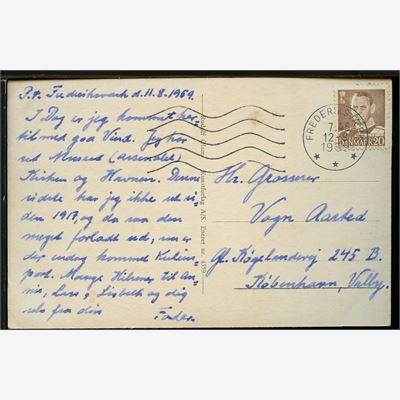 P.t. Frederiksværk d. 11.8.1959.
I Dag er jeg kommet her-
til med god Vind. Jeg har
set Museet (arsenalet)
Kirken og Havnen. Denne
sidste har jeg ikke set si
den 1917, og da saa den
meget forladt ud, nu er
der endog kommet
port. Mange Hilsner til
nis, Lars, Lisbeth og dig
selv fra din
Fader.
Hr. Grosserer
Vogn Aasted
Gl. Køgelandevej 245 B.
København, Valby.
Kunstforlag A/S. Eneret nr.
FREDERIKSVÆRK
12
19
DANMARK 20